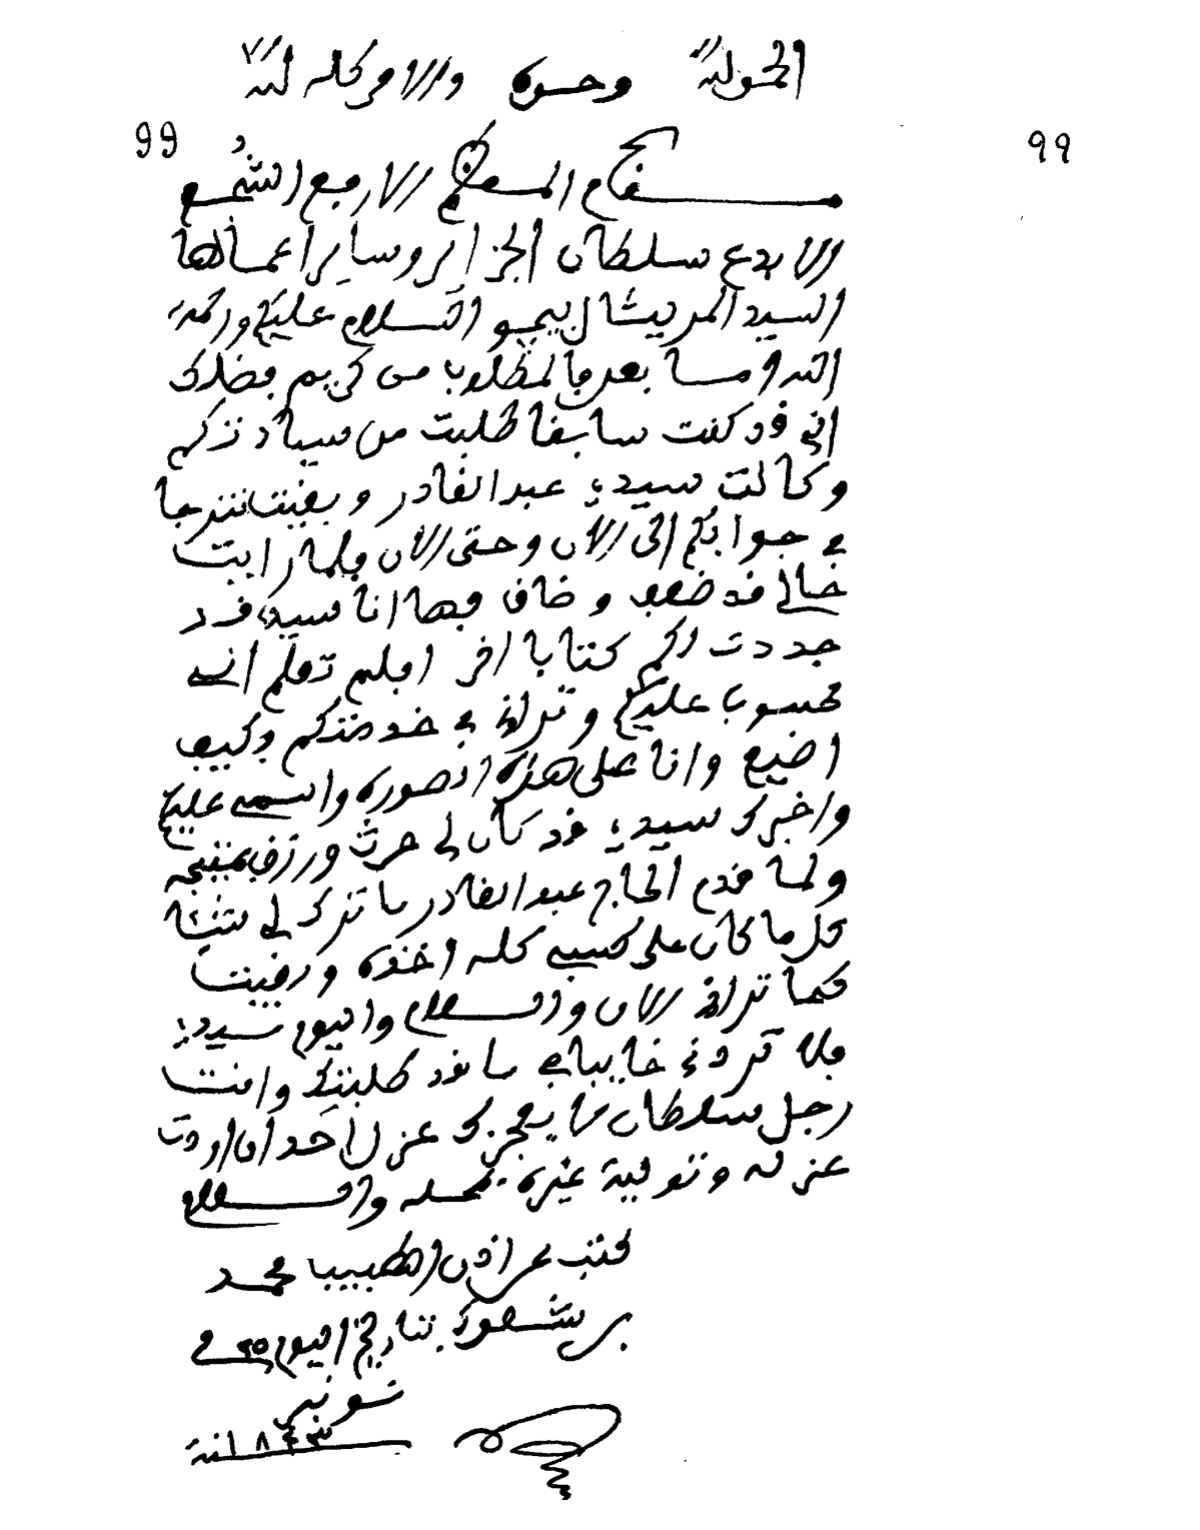 الحمد لله وحده والامر كله لله
99 99
مقام المعظم الارفع الشمع
والابدع سلطان الجزاير وساير اعمالها
السيد المريشال بيجو السلام عليكم ورحمة
الله وما بعد فالمطلوب من كريم فضلك
اني قد كنت سابقا طلبت من سيادتكم
وكالت سيدي عبد القادر وبقيت نترجا
في جوابكم الى الان وحتى الان فلما رايت
حالي قد ضعف وضاق فها انا سيدي قد
جددت لكم كتابا اخر افلم تعلم اني
محسوب عليكم وتراني في خدمتكم وكيف
اضيع وانا على هذه الصورة واسمي عليكم
واخبرك سيدي قد كان لي حرث ورزق
ولما قدم الحاج عبد القادر ما ترك لي شيا
كل ما كان على كسبي كله اخذه وبقيت
كما تراني الان والسلام واليوم سيدي
فلا تردني خايبا في ما قد طلبتك وانت
رجل سلطان ما يعجزك عزل احد ان اردت
عزله وتولية غيره بمحله والسلام
كتب عن اذن الطبيب محمد
بن شعوة بتاريخ اليوم ٢٥ في
نونبر
١٨٤٣ سنة